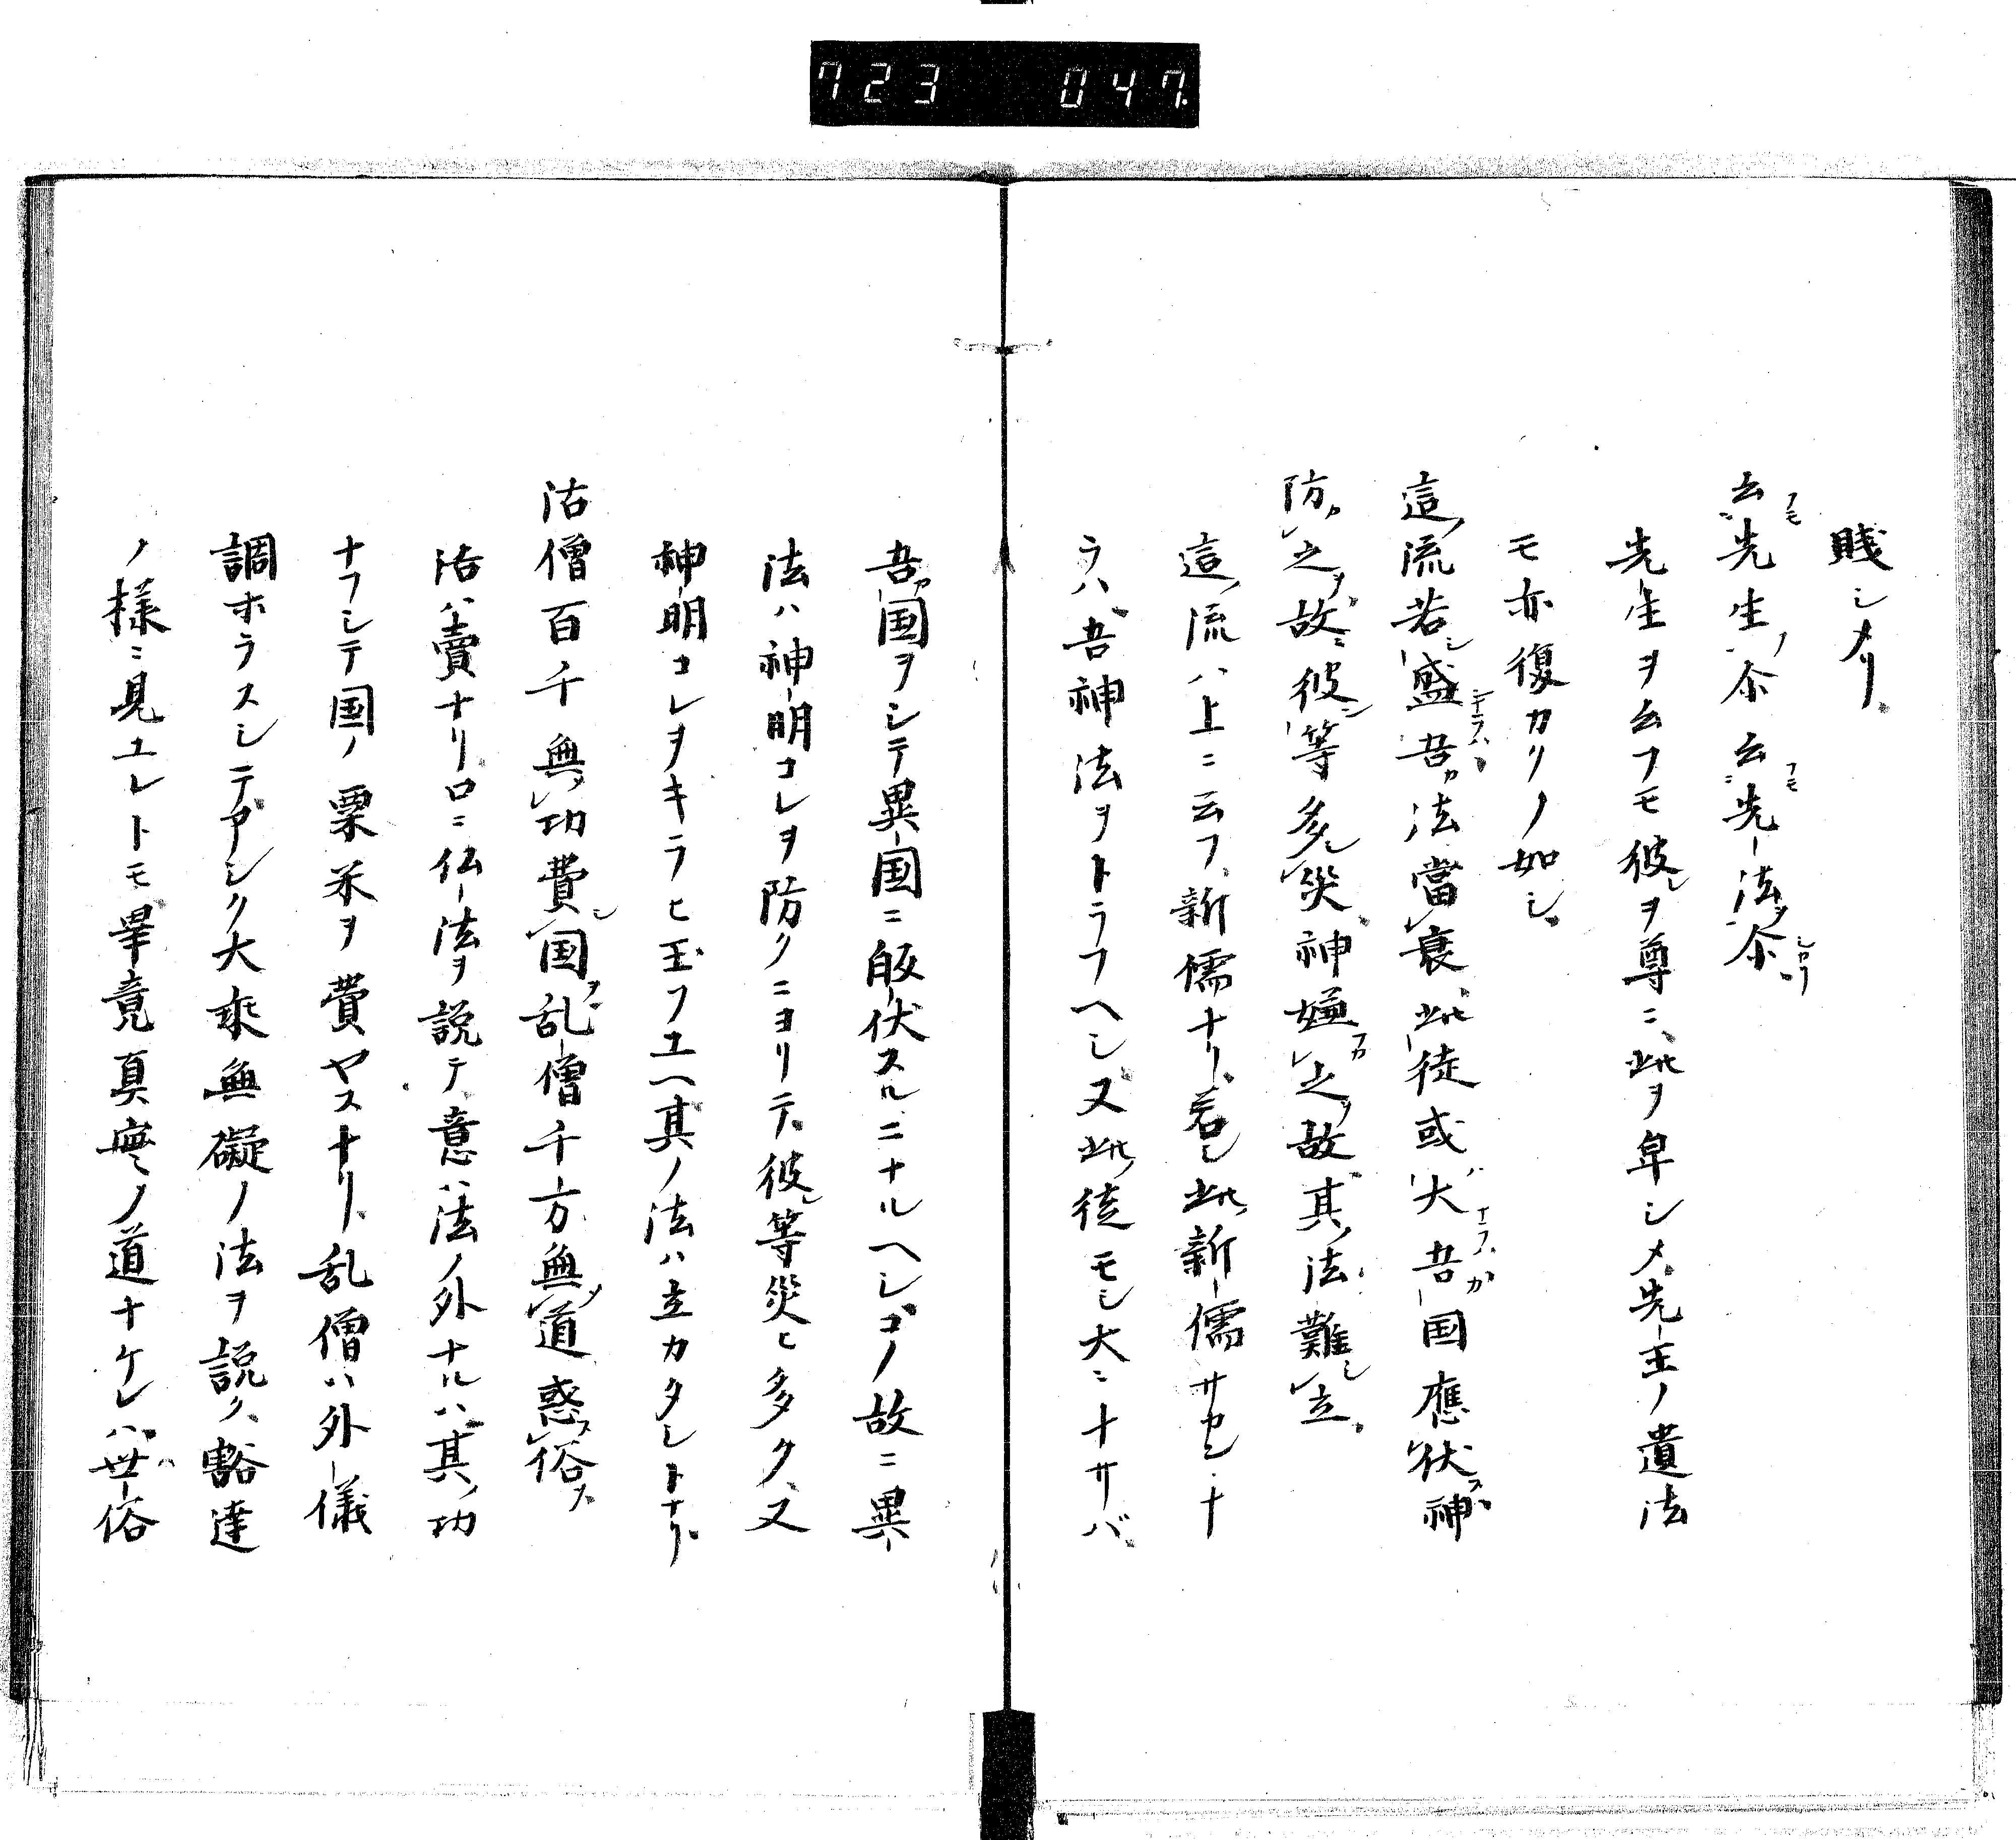 723 047
賤シメリ
云フモ先生ノ尒云フモ先法ヲ尒シカリ
先生ヲ云フモ彼シヲ尊ニ此ヲ卑シメ先王ノ遺法
モ亦復カクノ如シ
這ノ流若シ盛ナラハ吾カ法當衰此徒或ハ大ナラハ吾カ国應伏ス神
防カ之ヲ故ニ彼シ等多災神嫌フカ之ヲ故其ノ法難シ立
這ノ流ハ上ニ云フ新儒ナリ若シ此新儒サカンナ
ラハ吾神法ヲトラフヘシ又此徒モシ大ニナサバ
吾カ国ヲシテ異国ニ皈伏スルニナルヘシコノ故ニ異
法ハ神明コレヲ防クニヨリテ彼シ等災ヒ多ク又
神明コレヲキラヒ玉フユヘ其ノ法ハ立カタシトナリ
沽僧百千無功費シ国ヲ乱僧千方無メ道惑ス俗ヲ
沽ハ賣ナリ口ニ仏法ヲ説テ意ハ法ノ外ナルハ其ノ功
ナフシテ国ノ粟米ヲ費ヤスナリ乱僧ハ外儀
調ホラスシテ大乘無礙ノ法ヲ説ク豁達
ノ様ニ見ユレトモ畢竟真実ノ道ナケレハ世俗